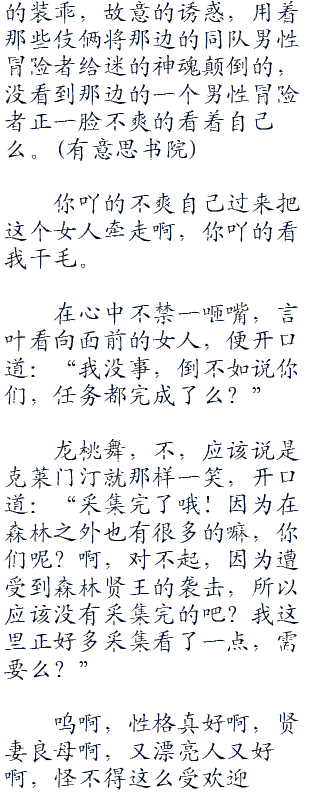 的装乖，故意的诱惑，用着
那些伎俩将那边的同队男性
冒险者给迷的神魂颠倒的，
没看到那边的一个男性冒险
者正一脸不爽的看着自己
么。(有意思书院)
你吖的不爽自己过来把
这个女人牵走啊，你吖的看
我干毛。
在心中不禁一咂嘴，言
叶看向面前的女人，便开口
道：“我没事，倒不如说你
们，任务都完成了么？”
龙桃舞，不，应该说是
克莱门汀就那样一笑，开口
道：“采集完了哦！因为在
森林之外也有很多的嘛，你
们呢？啊，对不起，因为遭
受到森林贤王的袭击，所以
应该没有采集完的吧？我这
里正好多采集看了一点，需
要么？”
呜啊，性格真好啊，贤
妻良母啊，又漂亮人又好
啊，怪不得这么受欢迎